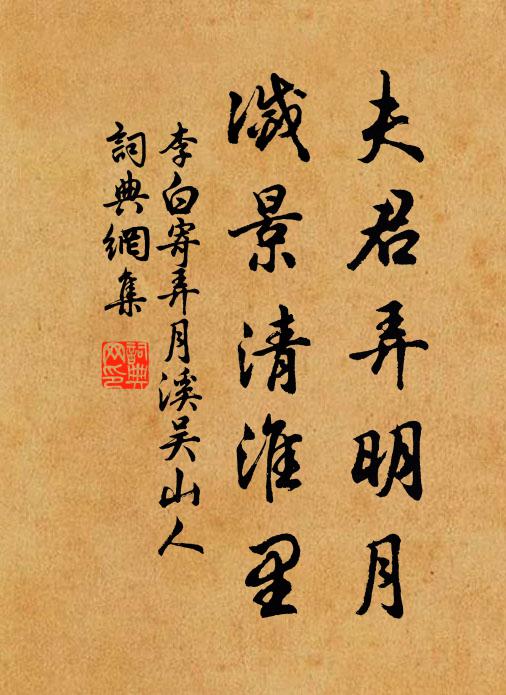 夫君弄明月
滅景清淮里
李白寄弄月溪吴山人
詞典網集
詞典网印